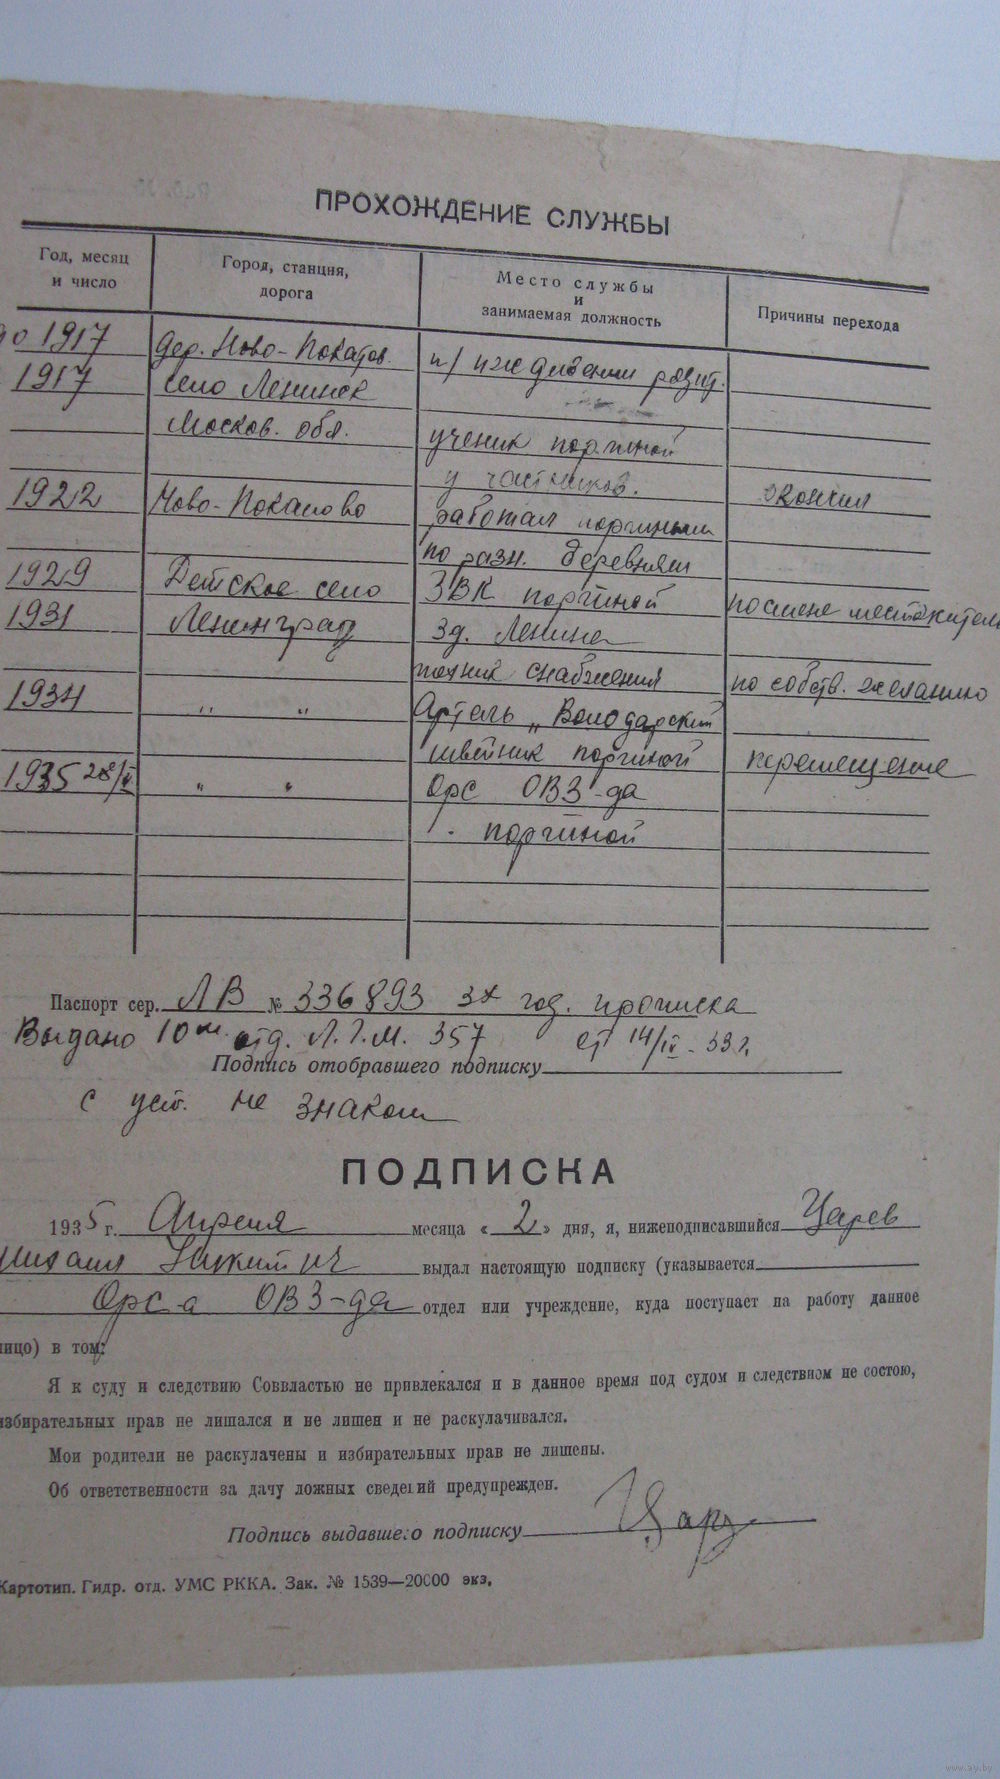 ПРОХОЖДЕНИЕ СЛУЖБЫ
Год, месяц и число
Город, станция, дорога
Место службы и занимаемая должность
Причины перехода
до 1917 дер. Ново-Покатов. н/ иждивении родит.
1917 село Ленинск
Москов. обл. ученик портной
у частников. окончил
1922 Ново-Покатово работал портным
по разн. деревням
1929 Детское село ЗВК портной по смене местожитель
1931 Ленинград Зд. Ленина
снабжения по собств. желанию
1934 " " Артель „Володарский
швейник портной перемещение
1935 28/II " " Орс ОВЗ-да
портной
Паспорт сер. ЛВ № 336893 3х год. прописка
Выдано 10м отд. Л.Г.М. 357 от 14/IV-33г.
Подпись отобравшего подписку
с уст. не знаком
ПОДПИСКА
1935 г. Апреля месяца « 2 » дня, я, нижеподписавшийся Царев
Михаил Никитич выдал настоящую подписку (указывается
Орс-а ОВЗ-да отдел или учреждение, куда поступает на работу данное
лицо) в том:
Я к суду и следствию Соввластью не привлекался и в данное время под судом и следствием не состою,
избирательных прав не лишался и не лишен и не раскулачивался.
Мои родители не раскулачены и избирательных прав не лишены.
Об ответственности за дачу ложных сведений предупрежден.
Подпись выдавшего подписку Цар
Картотип. Гидр. отд. УМС РККА. Зак. № 1539—20000 экз.
www.ay.by